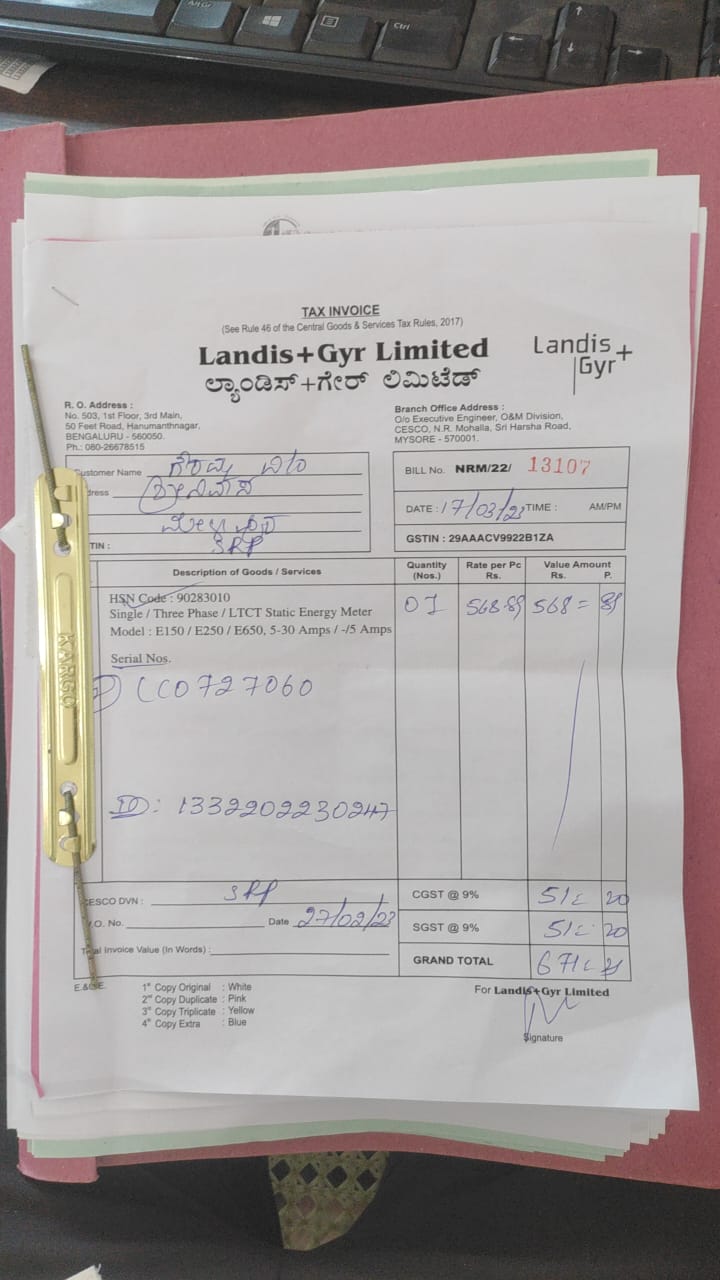 Alt Gr
Ctrl
TAX INVOICE
(See Rule 46 of the Central Goods & Services Tax Rules, 2017)
Landis+Gyr Limited
ಲ್ಯಾಂಡಿಸ್+ಗೇರ್ ಲಿಮಿಟೆಡ್
Landis+
Gyr
R. O. Address :
No. 503, 1st Floor, 3rd Main,
50 Feet Road, Hanumanthnagar,
BENGALURU - 560050.
Ph.: 080-26678515
Branch Office Address :
O/o Executive Engineer, O&M Division,
CESCO, N.R. Mohalla, Sri Harsha Road,
MYSORE - 570001.
Customer Name
dress
TIN : SRP
BILL No. NRM/22/ 13107
DATE : 17/03/23 TIME : AM/PM
GSTIN : 29AAACV9922B1ZA
Description of Goods / Services Quantity (Nos.) Rate per Pc Rs. Value Amount Rs. P.
HSN Code : 90283010
Single / Three Phase / LTCT Static Energy Meter 01 568.89 568 = 89
Model : E150 / E250 / E650, 5-30 Amps / -/5 Amps
Serial Nos.
LC0727060
KARGO
ID : 1332202230247
CESCO DVN : SRP
CGST @ 9% 51 20
.O. No. Date 27/02/23
SGST @ 9% 51 20
Total Invoice Value (In Words) :
GRAND TOTAL 671
E.&.O.E.
1st Copy Original : White
2nd Copy Duplicate : Pink
3rd Copy Triplicate : Yellow
4th Copy Extra : Blue
For Landis+Gyr Limited
Signature